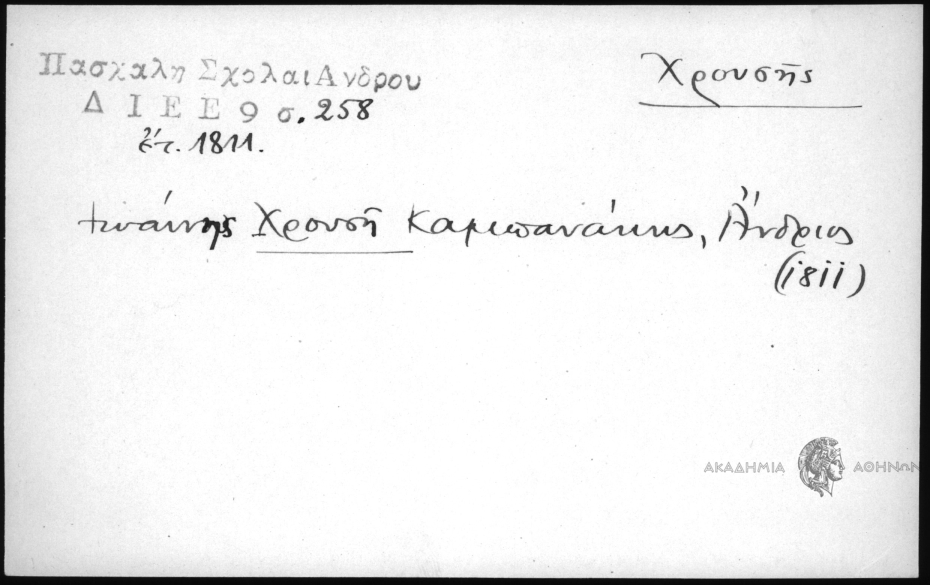 Πασχαλη Σχολαι Ανδρου
Δ Ι Ε Ε 9 σ. 258
ἔτ. 1811.
Χρουσῆς
Ἰωάννης Χρουσῆ Καμπανάκης, Ἄνδριος
(1811)
ΑΚΑΔΗΜΙΑ ΑΘΗΝΩΝ